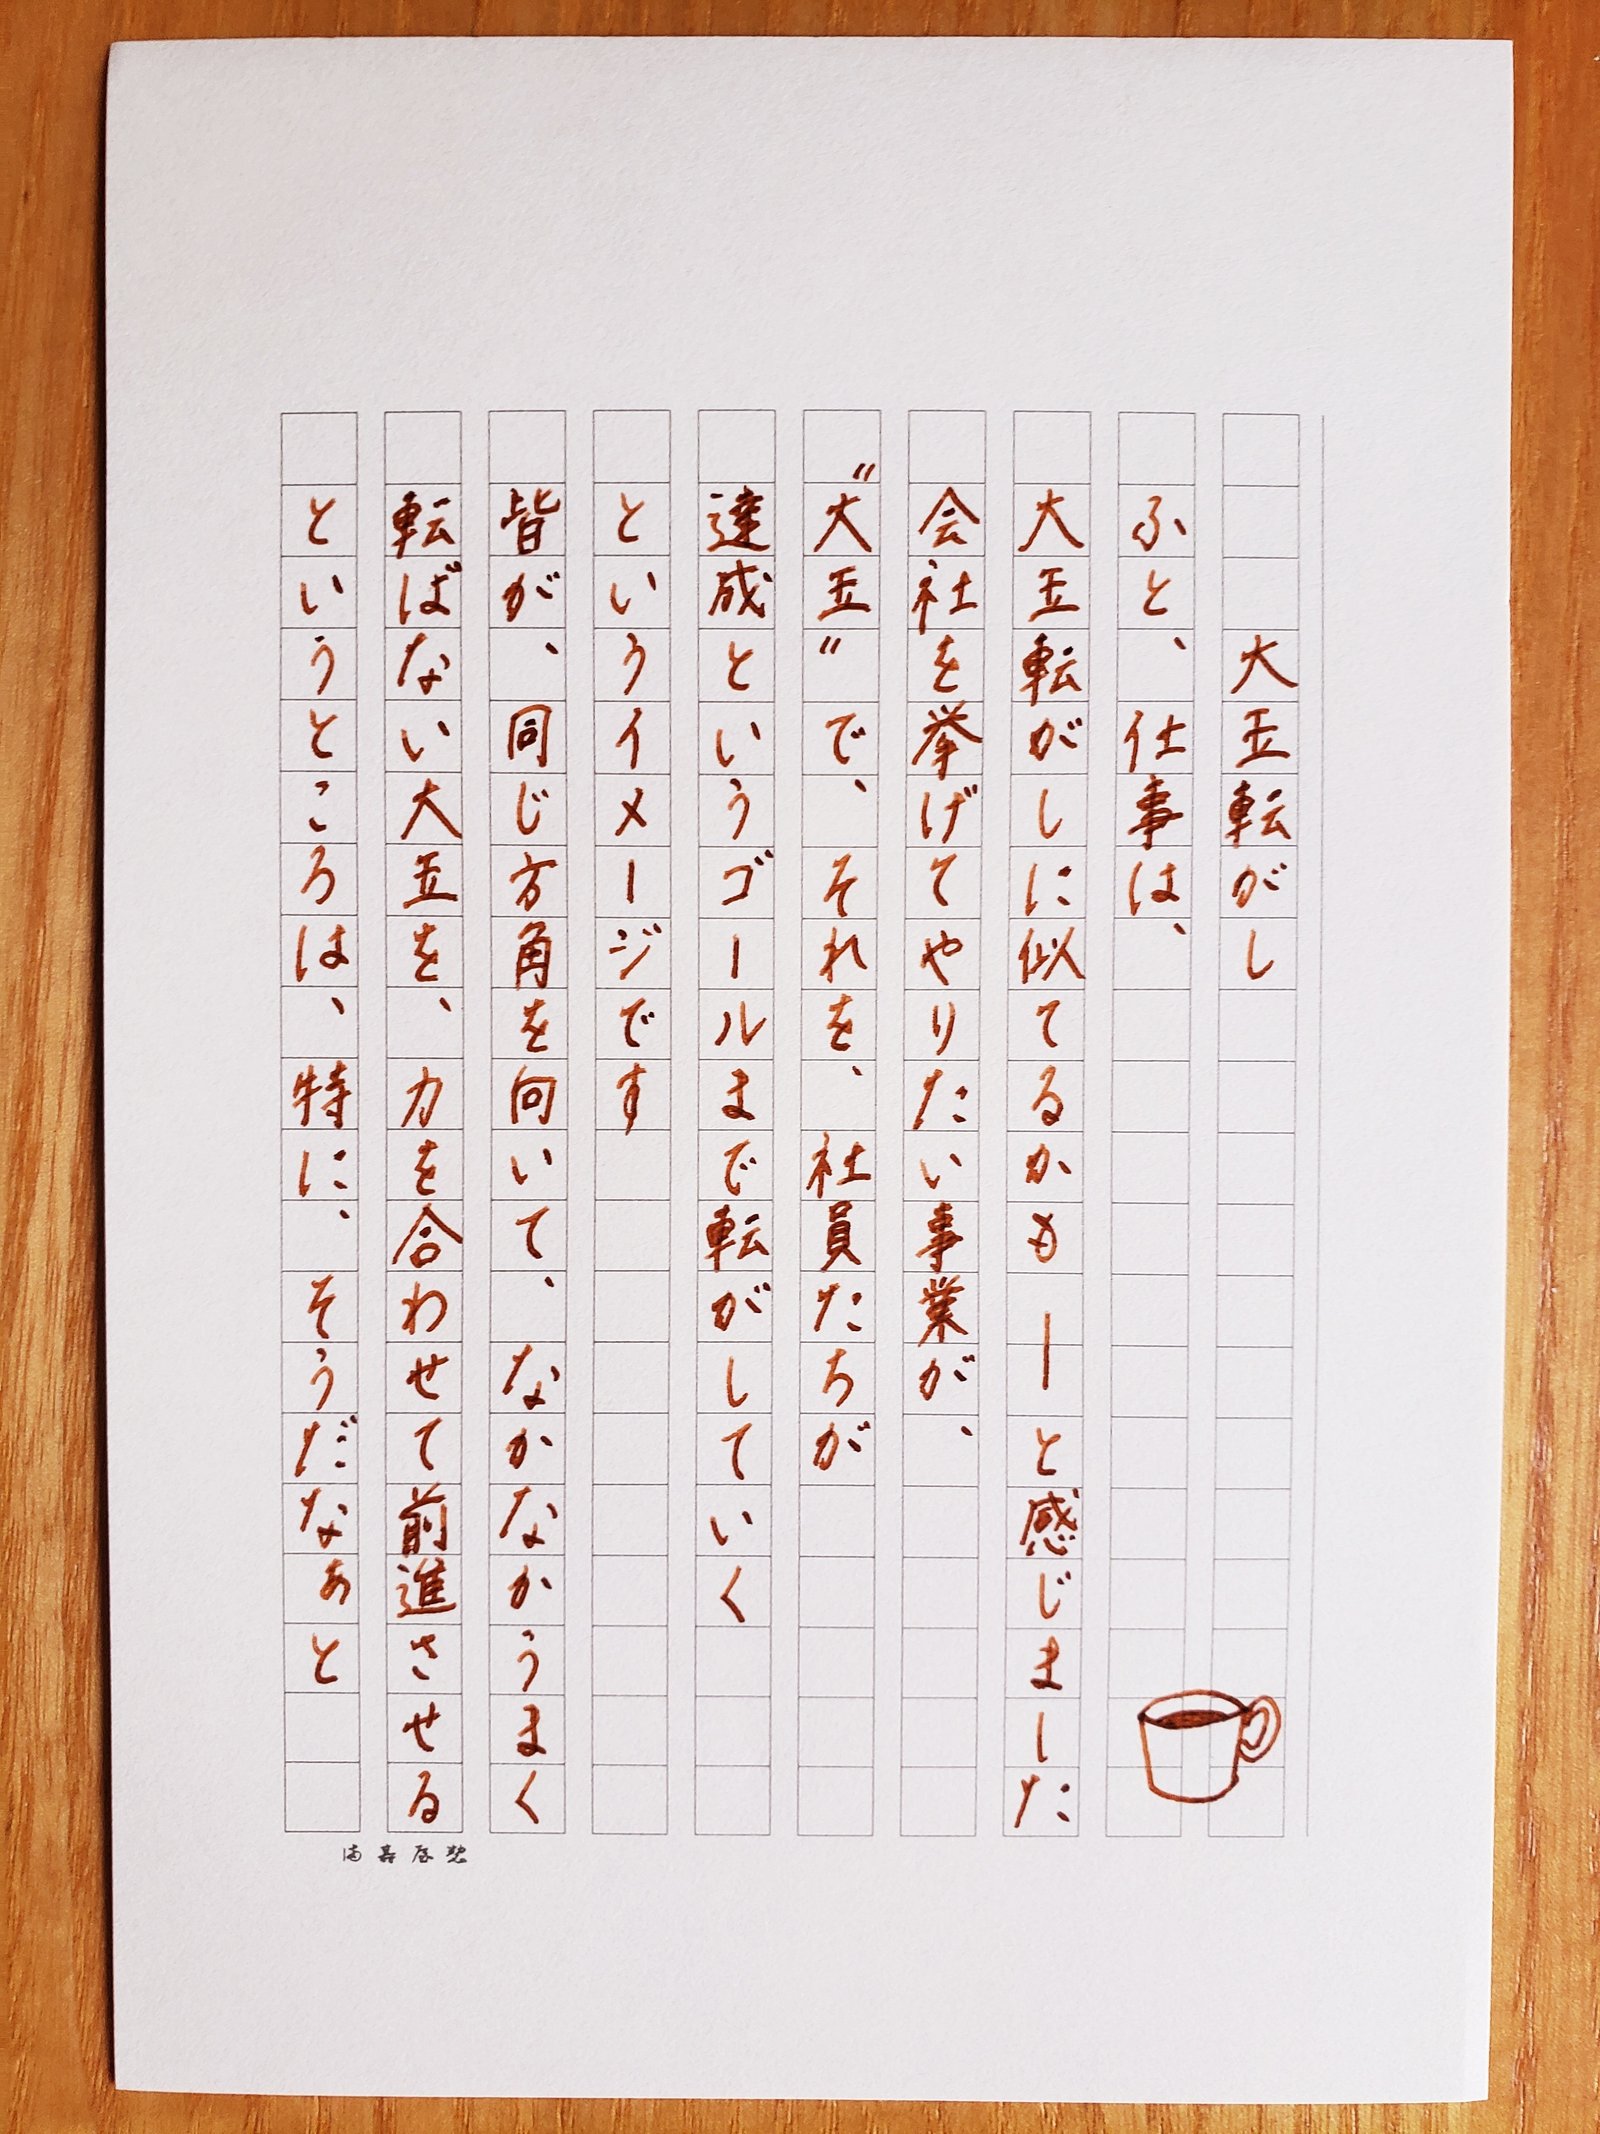 大玉転がし
ふと、仕事は、
大玉転がしに似てるかも―と感じました
会社を挙げてやりたい事業が、
〝大玉〟で、それを、社員たちが
達成というゴールまで転がしていく
というイメージです
皆が、同じ方角を向いて、なかなかうまく
転ばない大玉を、力を合わせて前進させる
というところは、特に、そうだなぁと
満寿屋製